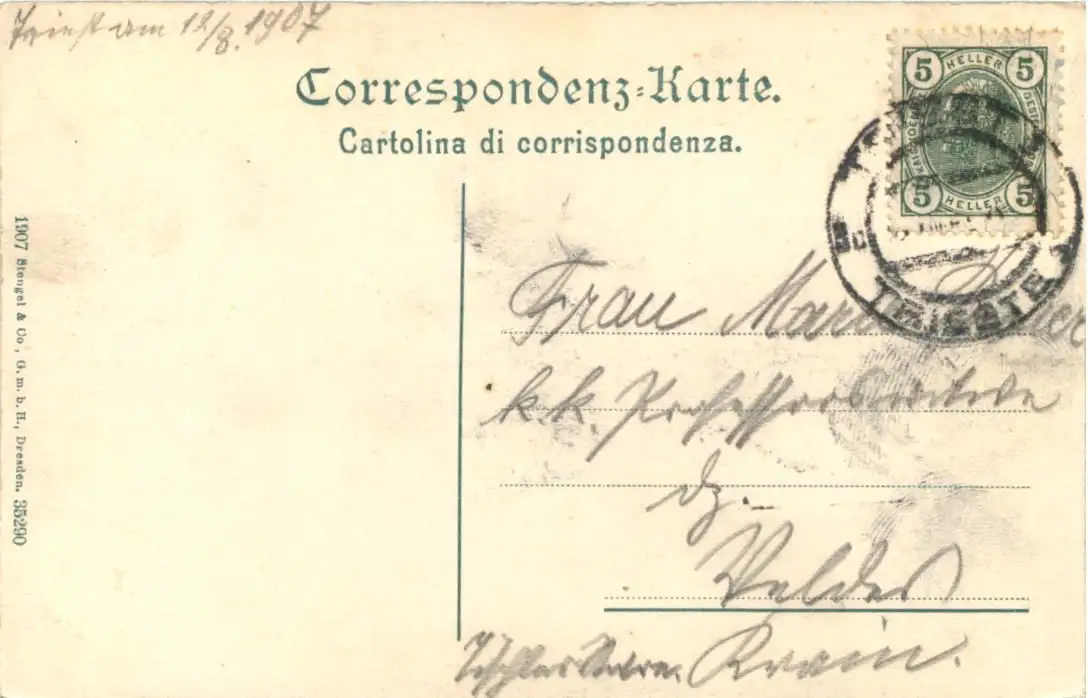 Triest am 12/8. 1907
Correspondenz-Karte.
Cartolina di corrispondenza.
5 HELLER 5
5 HELLER 5
TRIESTE
1907 Stengel & Co., G. m. b. H., Dresden. 35290
Frau
k. k. Professorswitwe
dz.
Veldes
Krain.